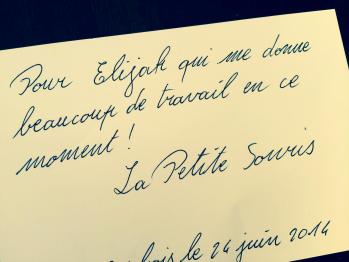 Pour Elijah qui me donne
beaucoup de travail en ce
moment !
La Petite Souris
bois le 24 juin 2014